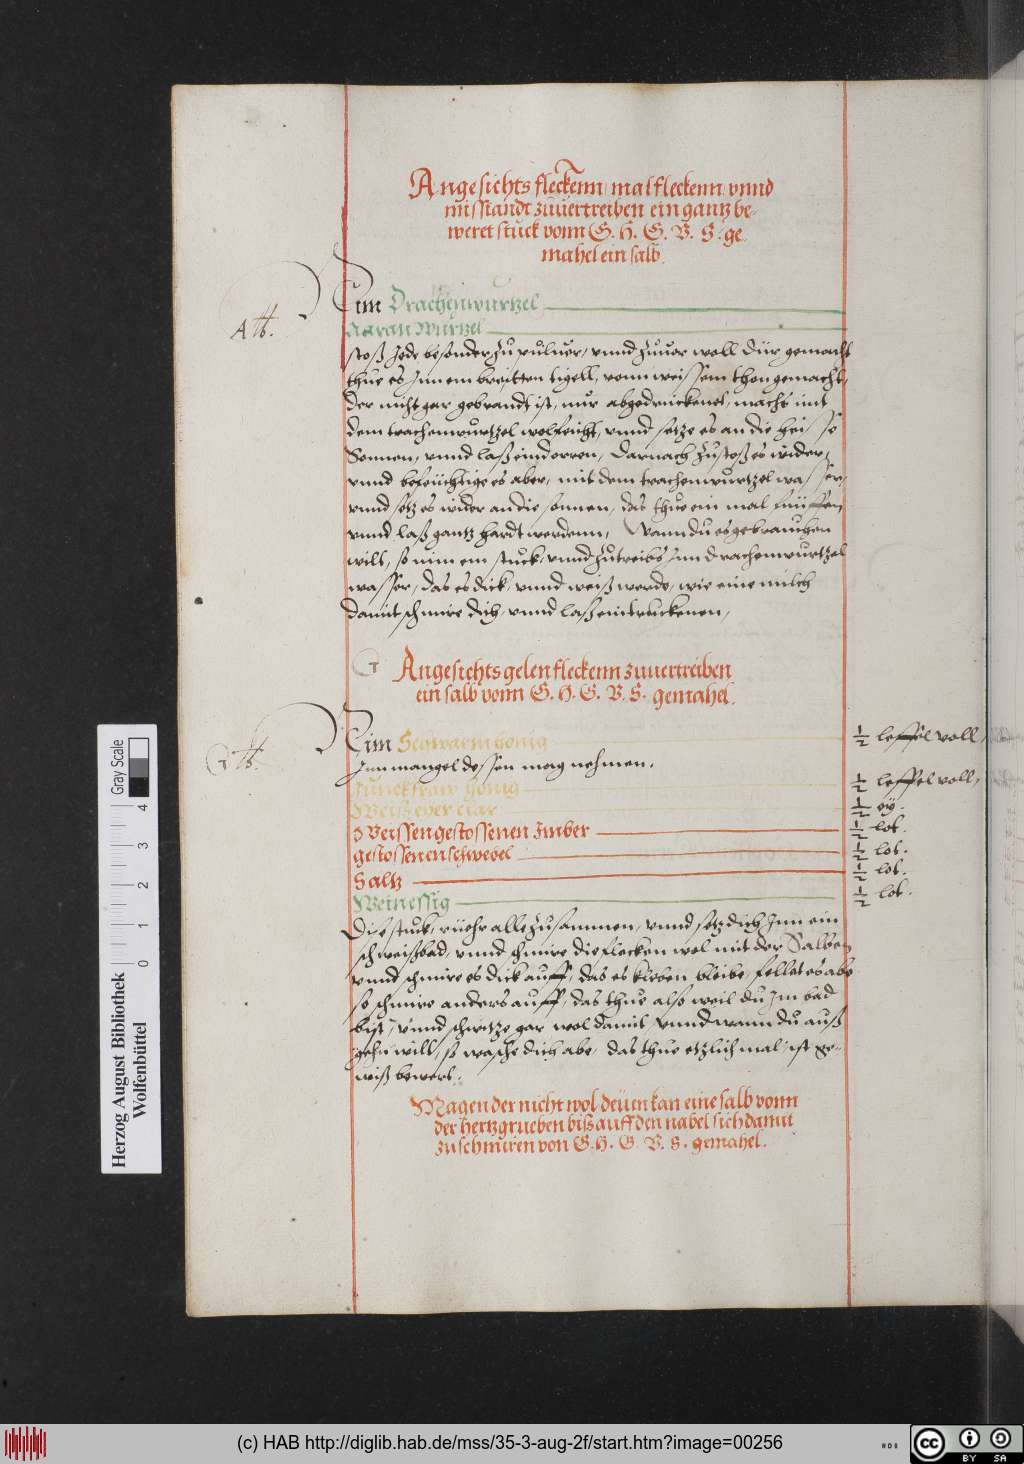 Angesichts fleckenn, malfleckenn, vnnd
misstandt zuuertreiben ein gantz be-
weret stuck vonn G. H. G. V. S. ge
mahel ein salb.
Nim Drachenwurtzel
Aaran Wurtzel
stoß Jede besonder zu puluer, vnnd zuuor woll dür gemacht
thue es Jnn em breitten tigell, vonn weissem thon gemacht,
der nicht gar gebrandt ist, nur abgedruckenet, macht mit
dem trachenwurtzel wol feücht, vnnd setze es an die heisse
Sonnen, vnnd laß eindorren, Darnach zustoß es wider,
vnnd befeüchtige es aber, mit dem trachenwurtzel wasser,
vnnd setz es wider an die sonnen, das thue ein mal fünffen
vnnd laß gantz hardt werdenn, Wann du es gebrauchen
willt, so nim em stuck, vnnd zutreibs Jnn drachenwurtzel
wasser, das es dick, vnnd weiß werde, wie eine milch
damit schmire dich, vnnd laß eintruckenen,
Angesichts gelen fleckenn zuuertreiben
ein salb vonn G. H. G. V. S. gemahel.
Nim Schwarmhonig ½ leffel voll,
Jnn mangel dessen mag nehmen.
Junckfraw honig ½ leffel voll,
Weiß eyer clar ½ ey.
Weissen gestossenen Jmber ½ lot.
gestossenen schwebel ½ lot.
Saltz ½ lot.
Weinessig ½ lot.
Die stuck, rüehr alle zusammen, vnnd setz dich Jnn ein
schweißbad, vnnd schmire die flecken wol mit der Salben
vnnd schmire es dick auff, das es kleben bleibe, fellet es abe
so schmire anders auff, das thue also weil du Jm bad
bist, vnnd schwitze gar wol damit vnnd wann du auß
gehn willt, so wasche dich abe, das thue etzlich mal, ist ge-
wiß bewert.
Magen der nicht wol deuen kan eine salb vonn
der hertzgrueben biß auff den nabel sich damit
zuschmiren von G. H. G. V. S. gemahel.
Gray Scale
0 1 2 3 4
Herzog August Bibliothek
Wolfenbüttel
(c) HAB http://diglib.hab.de/mss/35-3-aug-2f/start.htm?image=00256
cc BY SA